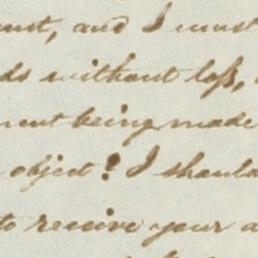 ust, and I must
ds without loss,
ment being made
object! I should
to receive your a